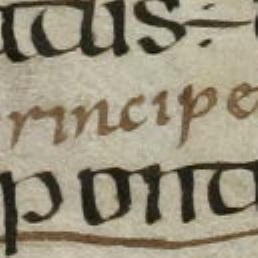 atus:
rincipe
pont